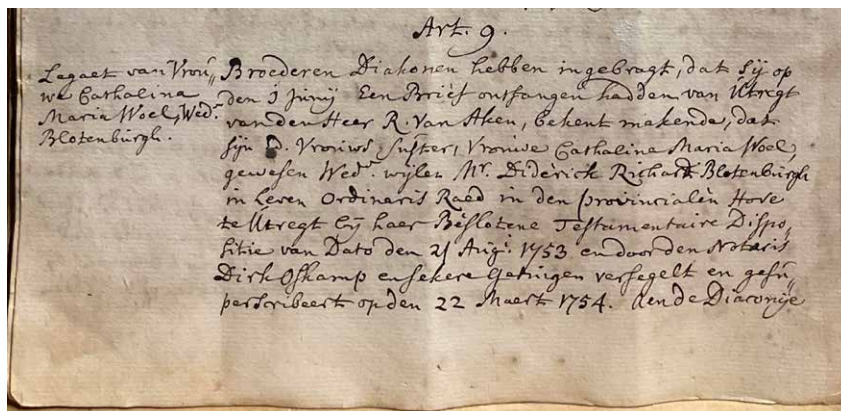 Art. 9.
Legaet van Vrou„
we Cathalina
Maria Woel, Wed.ᵉ
Blotenburgh.
Broederen Diakonen hebben ingebragt, dat sij op
den 1 Junij Een Brief ontfangen hadden van Utregt
van den Heer R. Van Aken, bekent makende, dat
sijn Vrouws suster, Vrouwe Cathalina Maria Woel,
gewesen Wed.ᵉ wijlen Mr. Diderick Richard Blotenburgh
in Leven Ordinaris Raed in den provincialen Hove
te Utregt bij haer Beslotene Testamentaire Dispo„
sitie van Dato den 21 Aug. 1753 en door den Notaris
Dirk Oskamp en sekere Getuigen versegelt en gesu„
perscribeert op den 22 Maert 1754. Aen de Diaconije